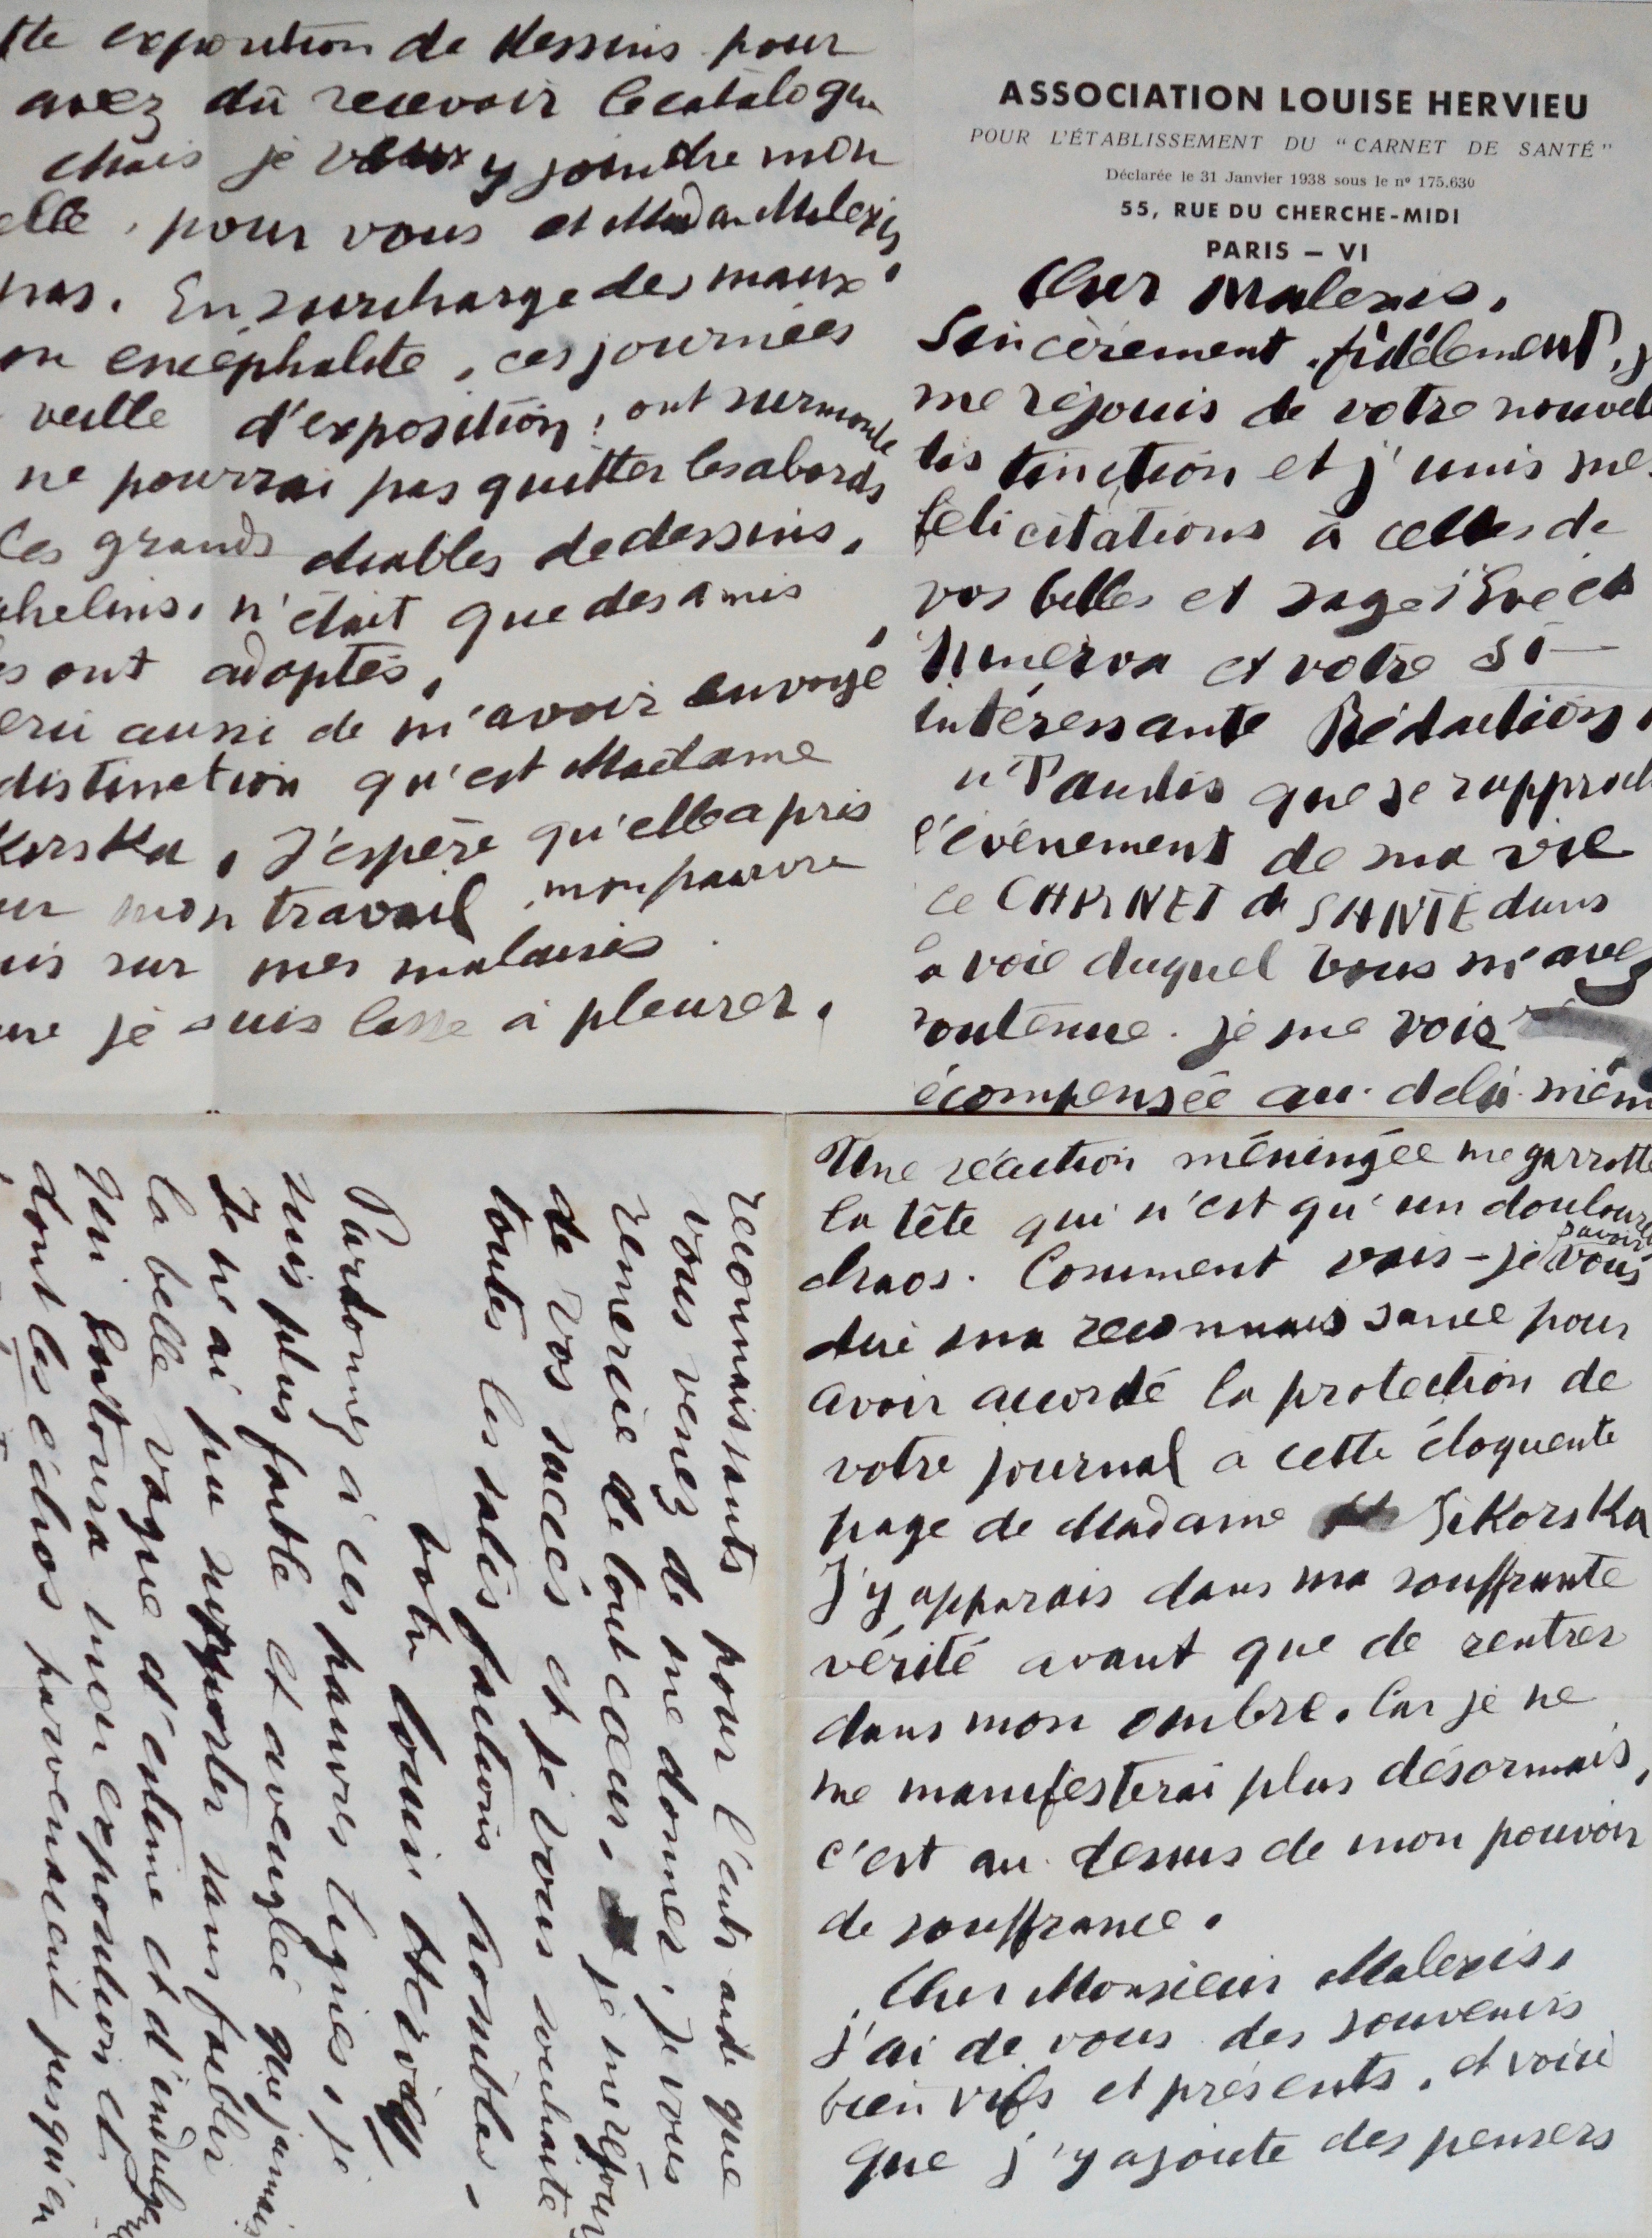 tte exposition de dessins pour
avez dû recevoir le catalogue
Mais je veux y joindre mon
elle, pour vous et Madam Malexis,
pas. En surcharge des maux
on encéphalite, ces journées
veille d'exposition, ont surmonté
ne pourrai pas quitter les abords
ces grands diables de dessins,
phelins, n'était que des amis
es ont adoptés,
erci aussi de m'avoir envoyé
distinction qu'est Madame
korska, J'espère qu'elle a pris
ur mon travail, mon pauvre
uis sur mes malaises
ure je suis lasse à pleurer.
ASSOCIATION LOUISE HERVIEU
POUR L'ÉTABLISSEMENT DU "CARNET DE SANTÉ"
Déclarée le 31 Janvier 1938 sous le n° 175.630
55, RUE DU CHERCHE-MIDI
PARIS – VI
Cher Malexis,
Sincèrement, fidèlement, j
me réjouis de votre nouvel
distinction et j'unis mes
félicitations à celles de
vos belles et sages Eve et
Minerva et votre si
intéressante Rédaction,
Tandis que se rapproch
l'évènement de ma vie
le CARNET de SANTÉ dans
la voie duquel vous m'avez
soutenue. je me vois
récompensée au-delà mêm
reconnaissants pour l'entr'aide que
vous venez de me donner. Je vous
remercie de tout cœur, je me réjouis
de vos succès et je vous souhaite
toutes les satisfactions possibles,
votre Louise Hervieu
Pardonnez à ces pauvres lignes, je
suis plus faible et aveuglée que jamais
Je ne ai pu supporter sans faiblir
la belle vague d'estime et d'indulgence
qui entoura mon exposition et
dont les échos parvenaient jusqu'en
Une réaction méningée me garrotte
la tête qui n'est qu'un douloure
chaos. Comment vais-je savoir vous
dire ma reconnaissance pour
avoir accordé la protection de
votre journal à cette éloquente
page de Madame Sikorska
J'y apparais dans ma souffrante
vérité avant que de rentrer
dans mon ombre. Car je ne
me manifesterai plus désormais,
c'est au-dessus de mon pouvoir
de souffrance.
Cher Monsieur Malexis,
j'ai de vous des souvenirs
bien vifs et présents, et voici
que j'y ajoute des pensers